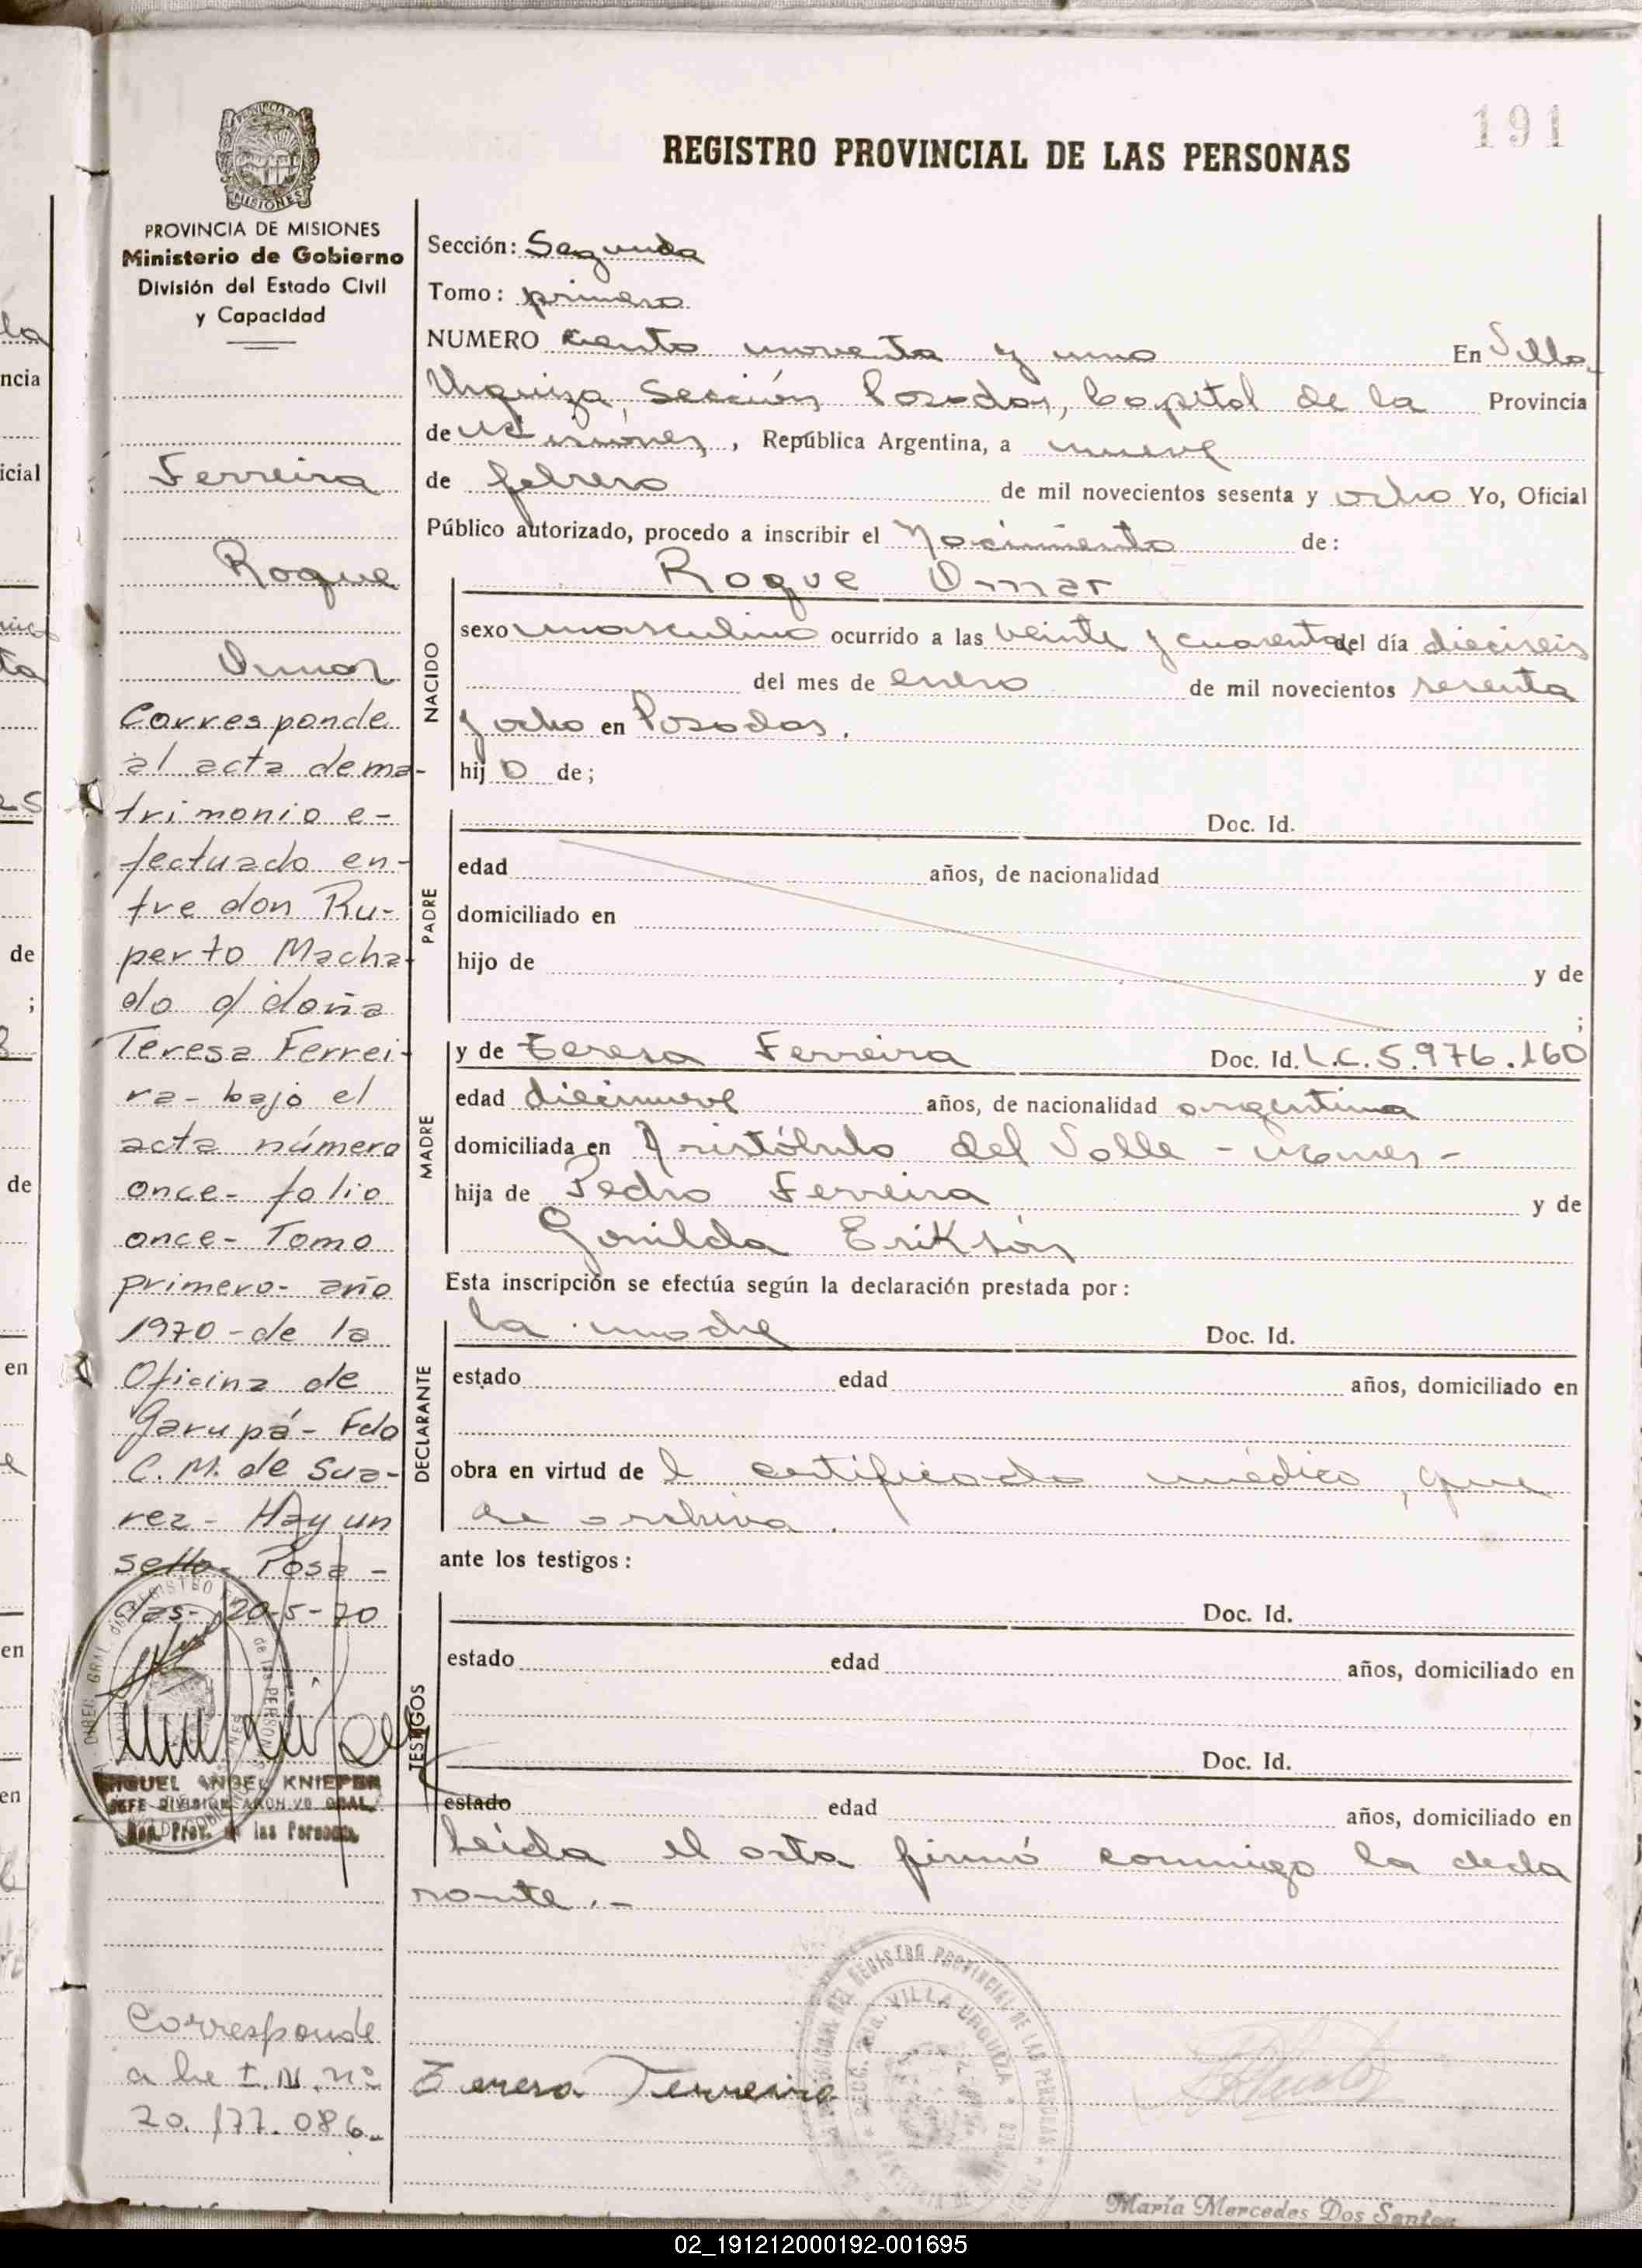 191
REGISTRO PROVINCIAL DE LAS PERSONAS
PROVINCIA DE MISIONES
Ministerio de Gobierno
División del Estado Civil
y Capacidad
Ferreira
Roque
Omar
Corresponde
al acta de ma-
trimonio e-
fectuado en-
tre don Ru-
perto Macha-
do y doña
Teresa Ferrei-
ra - bajo el
acta número
once - folio
once - Tomo
primero - año
1970 - de la
Oficina de
Garupá - Fdo
C. M. de Sua-
rez - Hay un
sello - Posa-
das - 20-5-70
MIGUEL ANGEL KNIEPER
JEFE DIVISION ARCHIVO GRAL.
Reg. Prov. de las Personas
Corresponde
a la I. N. nº
20.177.086.-
Sección: Segunda
Tomo: primero
NUMERO ciento noventa y uno En Villa
Urquiza, Sección Posadas, Capital de la Provincia
de Misiones, República Argentina, a nueve
de febrero de mil novecientos sesenta y ocho Yo, Oficial
Público autorizado, procedo a inscribir el Nacimiento de:
Roque Omar
NACIDO
sexo masculino ocurrido a las veinte y cuarenta del día dieciseis
del mes de enero de mil novecientos sesenta
y ocho en Posadas.
hij o de;
PADRE
Doc. Id.
edad años, de nacionalidad
domiciliado en
hijo de y de
;
MADRE
y de Teresa Ferreira Doc. Id. L.C. 5.976.160
edad diecinueve años, de nacionalidad argentina
domiciliada en Aristóbulo del Valle - Mnes -
hija de Pedro Ferreira y de
Gonilda Erikson
Esta inscripción se efectúa según la declaración prestada por:
DECLARANTE
la madre Doc. Id.
estado edad años, domiciliado en
obra en virtud de l certificado médico, que
se archiva.
ante los testigos:
TESTIGOS
Doc. Id.
estado edad años, domiciliado en
Doc. Id.
estado edad años, domiciliado en
Leída el acta firmó conmigo la decla
rante.-
REGISTRO PROVINCIAL DE LAS PERSONAS
VILLA URQUIZA
Teresa Ferreira
María Mercedes Dos Santos
02_191212000192-001695